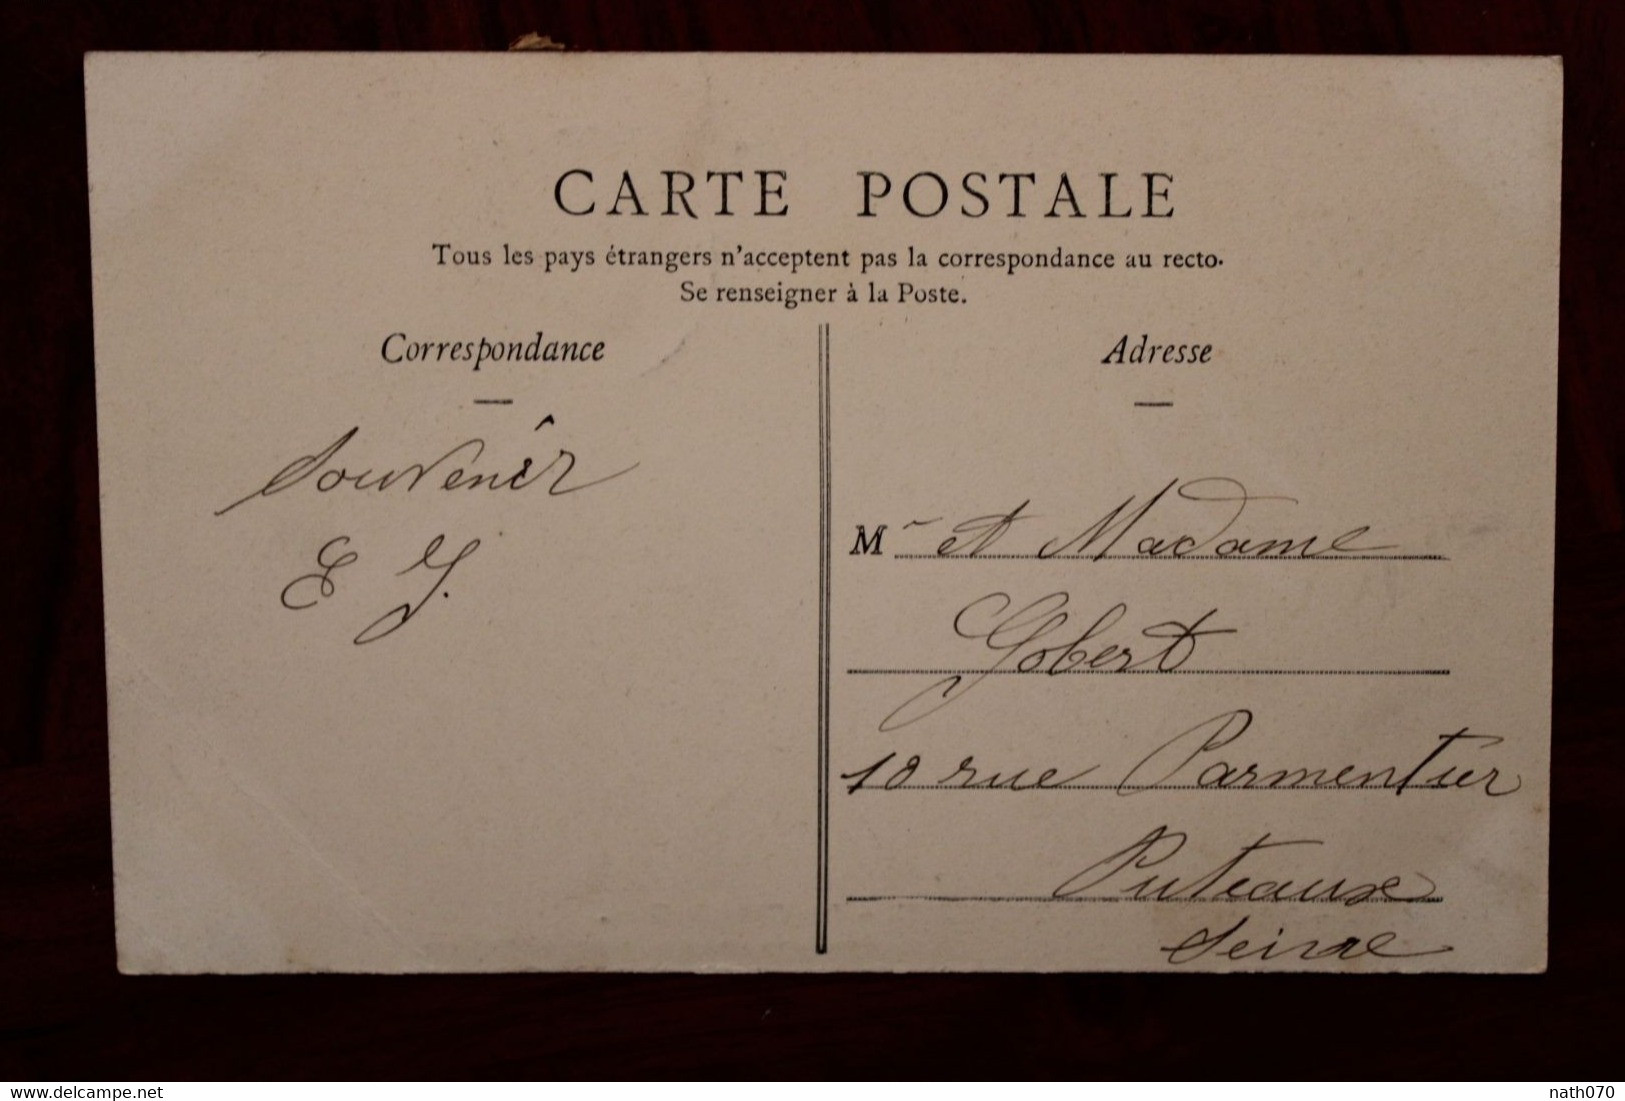 CARTE POSTALE
Tous les pays étrangers n'acceptent pas la correspondance au recto.
Se renseigner à la Poste.
Correspondance
Souvenir
E G.
Adresse
Mr et Madame
Gobert
10 rue Parmentier
Puteaux
Seine
www.delcampe.net
nath070